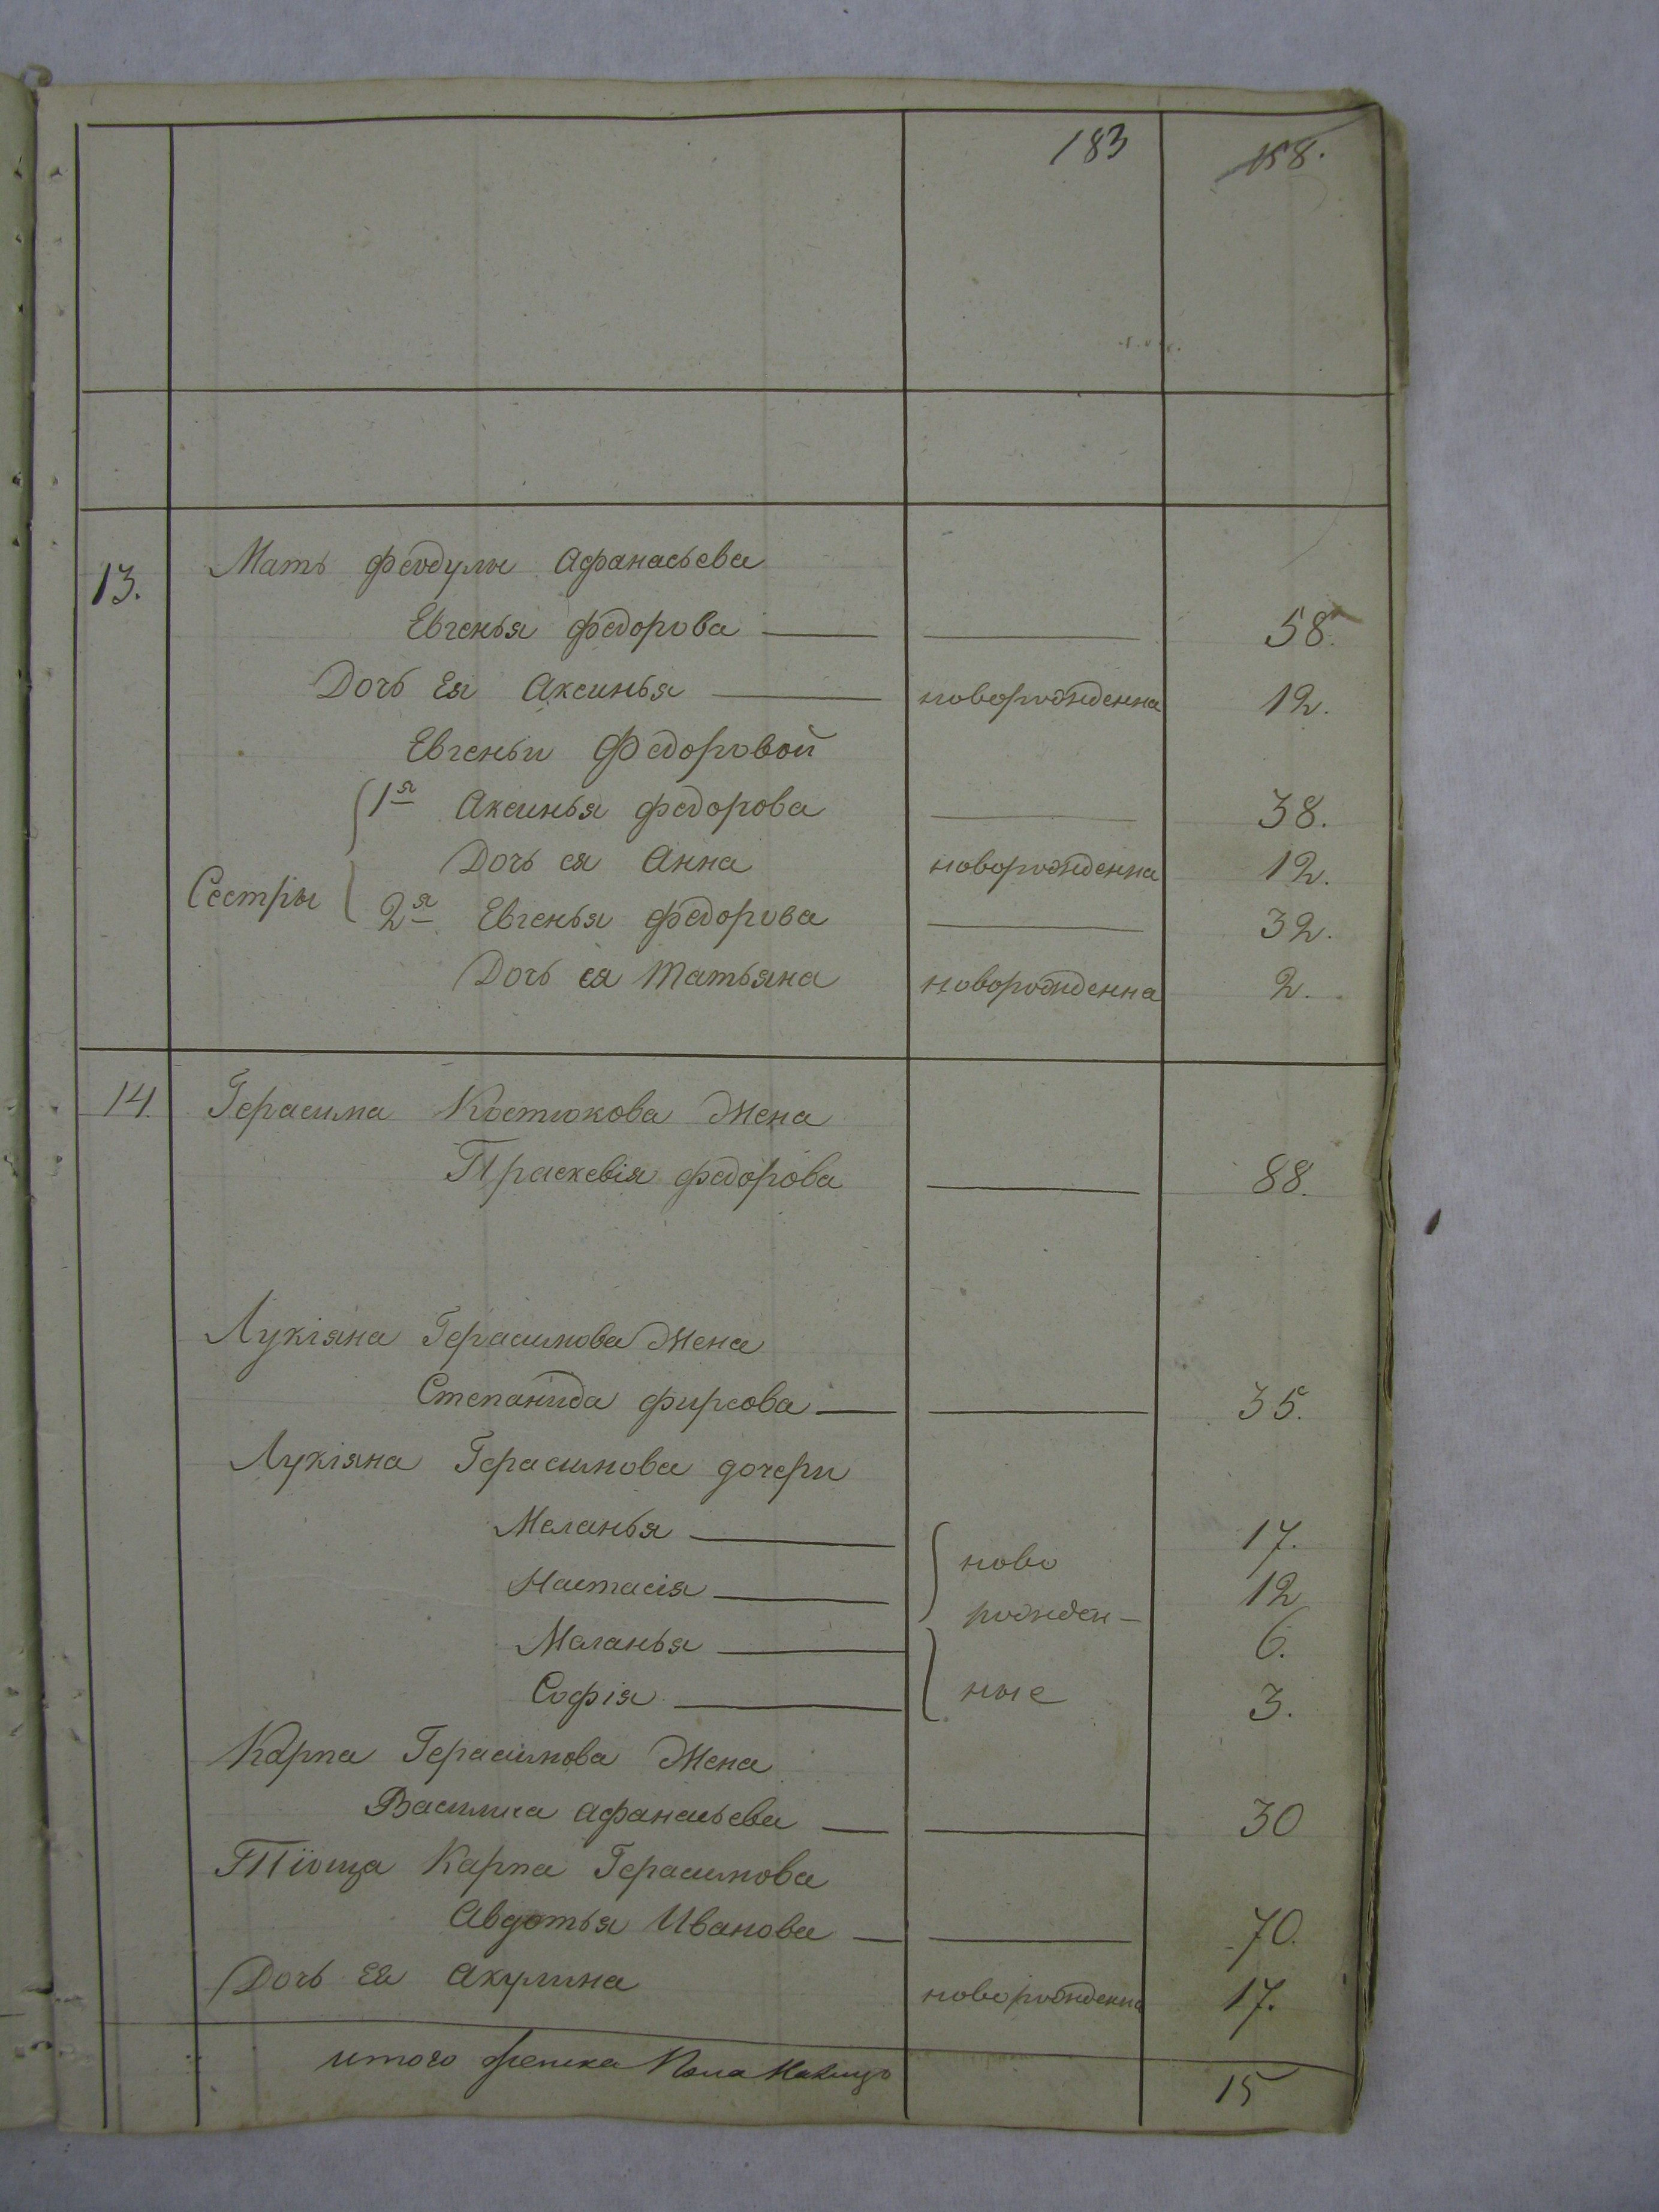 183 158.
13. Мать Феодулы Афанасьева
Евгенья Федорова — — 58.
Дочь Ея Аксинья — новорожденна 12.
Евгеньи Федоровой
1я Аксинья Федорова — 38.
Дочь ея Анна новорожденна 12.
Сестры
2я Евгенья Федорова — 32.
Дочь ея Татьяна новорожденна 2.
14. Герасима Костюкова Жена
Праскевія Федорова — 88.
Лукіяна Герасимова Жена
Степанида Фирсова — — 35.
Лукіяна Герасимова дочери
Меланья — 17.
ново
Настасія — 12
рожден-
Маланья — 6.
Софія — ные 3.
Карпа Герасимова Жена
Василиса Афанасьева — — 30
Тіоща Карпа Герасимова
Авдотья Иванова — — 70.
Дочь Ея Акулина новорожденна 17.
итого женска пола налицо 15